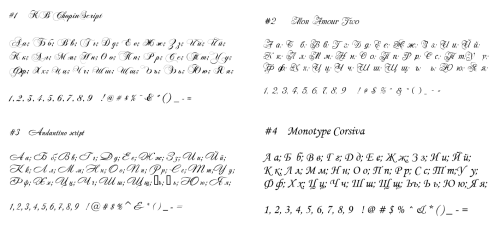 #1 H B Chopin Script
Аа; Бб; Вв; Гг; Дд; Ее; Жж; Зз; Ии; Йй;
Кк; Лл; Мм; Нн; Оо; Пп; Рр; Сс; Тт; Уу;
Фф; Хх; Цц; Чч; Шш; Щщ; Ъъ; Ьь; Юю; Яя;
1, 2, 3, 4, 5, 6, 7, 8, 9 ! @ # % ^ & * ( ) _ - =
#2 Mon Amour Two
Аа; Бб; Вв; Гг; Дд; Ее; Жж; Зз; Ии; Йй;
Кк; Лл; Мм; Нн; Оо; Пп; Рр; Сс; Тт; Уу;
Фф; Хх; Цц; Чч; Шш; Щщ; ъ; ь; Юю; Яя;
1, 2, 3, 4, 5, 6, 7, 8, 9 ! # $ % ^ & * ( ) _ - =
#3 Andantino script
Аа; Бб; Вв; Гг; Дд; Ее; Жж; Зз; Ии; Йй;
Кк; Лл; Мм; Нн; Оо; Пп; Рр; Сс; Тт; Уу;
Фф; Хх; Цц; Чч; Шш; Щщ; ъ; ь; Юю; Яя;
1, 2, 3, 4, 5, 6, 7, 8, 9 ! @ # $ % ^ & * ( ) _ - =
#4 Monotype Corsiva
Аа; Бб; Вв; Гг; Дд; Ее; Жж; Зз; Ии; Йй;
Кк; Лл; Мм; Нн; Оо; Пп; Рр; Сс; Тт; Уу;
Фф; Хх; Цц; Чч; Шш; Щщ; Ъъ; Ьь; Юю; Яя;
1, 2, 3, 4, 5, 6, 7, 8, 9 ! @ # $ % ^ & * ( ) _ - =